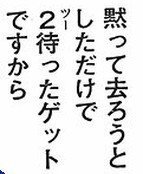 黙って去ろうと
しただけで
２待ったゲット
ツー
ですから